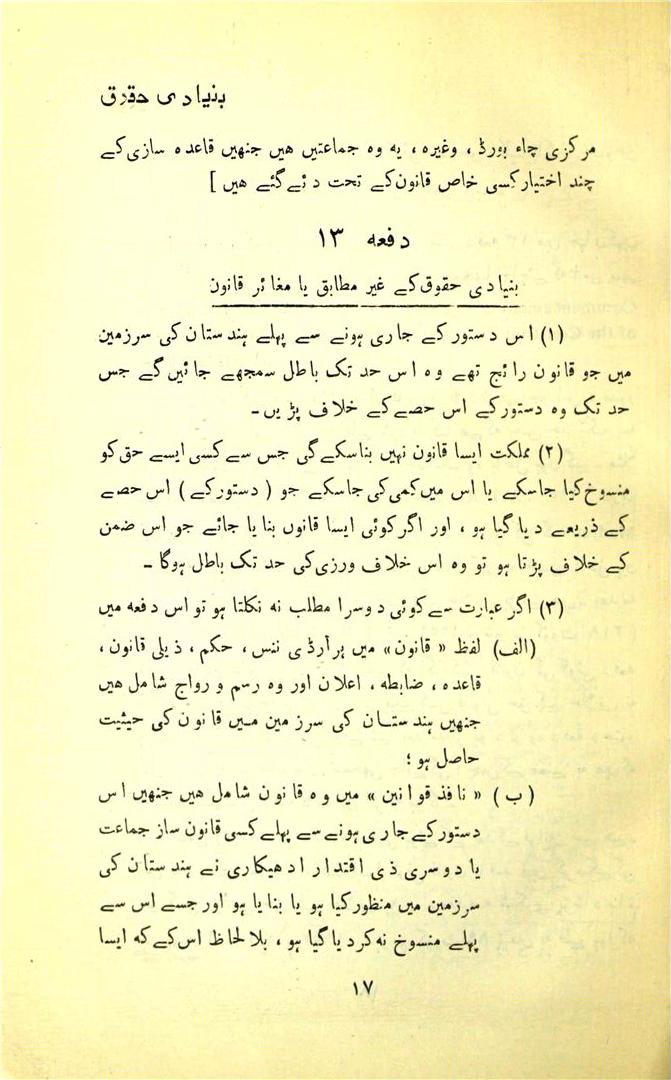 بنیادی حقوق
مرکزی چاء بورڈ ، وغیرہ ، یہ وہ جماعتیں ھیں جنھیں قاعدہ سازی کے
چند اختیار کسی خاص قانون کے تحت دئے گئے ھیں ]
دفعہ ۱۳
بنیادی حقوق کے غیر مطابق یا مغائر قانون
(۱) اس دستور کے جاری ہونے سے پہلے ہندستان کی سرزمین
میں جو قانون رائج تھے وہ اس حد تک باطل سمجھے جائیں گے جس
حد تک وہ دستور کے اس حصے کے خلاف پڑیں ۔
(۲) مملکت ایسا قانون نہیں بناسکے گی جس سے کسی ایسے حق کو
منسوخ کیا جاسکے یا اس میں کمی کی جاسکے جو ( دستور کے ) اس حصے
کے ذریعے دیا گیا ہو ، اور اگر کوئی ایسا قانوں بنایا جائے جو اس ضمن
کے خلاف پڑتا ہو تو وہ اس خلاف ورزی کی حد تک باطل ہوگا ۔
(۳) اگر عبارت سے کوئی دوسرا مطلب نہ نکلتا ہو تو اس دفعہ میں
(الف) لفظ « قانون » میں ہر آرڈی ننس ، حکم ، ذیلی قانون ،
قاعدہ ، ضابطہ ، اعلان اور وہ رسم و رواج شامل ھیں
جنھیں ہندستان کی سرزمین میں قانون کی حیثیت
حاصل ہو ؛
(ب) « نافذ قوانین » میں وہ قانون شامل ھیں جنھیں اس
دستور کے جاری ہونے سے پہلے کسی قانون ساز جماعت
یا دوسری ذی اقتدار ادھیکاری نے ہندستان کی
سرزمین میں منظور کیا ہو یا بنایا ہو اور جسے اس سے
پہلے منسوخ نہ کردیا گیا ہو ، بلا لحاظ اس کے کہ ایسا
۱۷